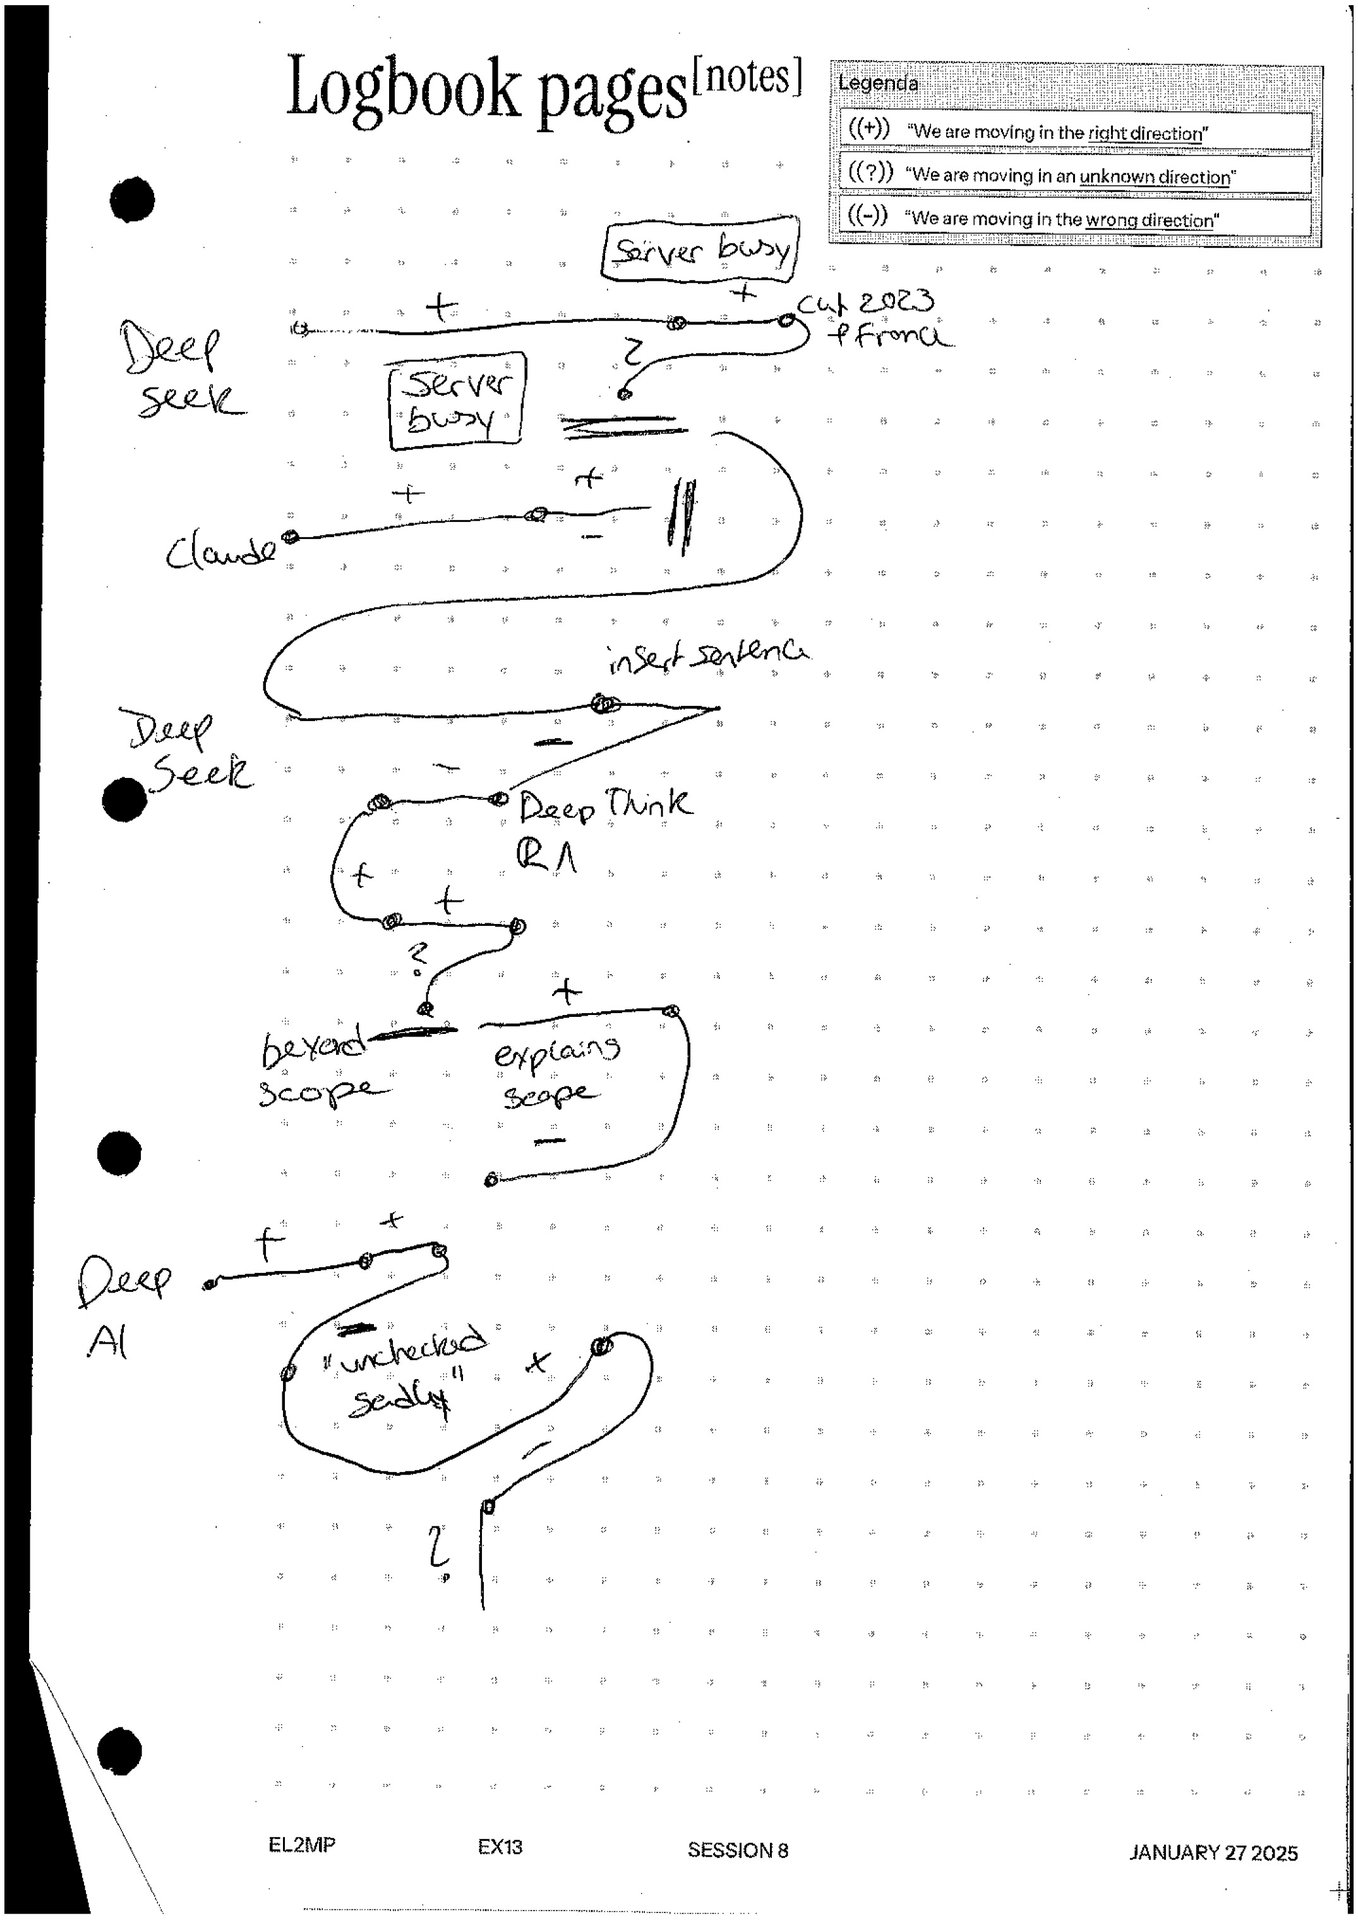 Logbook pages[notes]
Legenda
((+)) "We are moving in the right direction"
((?)) "We are moving in an unknown direction"
((-)) "We are moving in the wrong direction"
Server busy
+
+
Cut 2023
Deep
seek
?
Server
busy
+
+
-
Claude
insert sentence
Deep
Seek
-
-
Deep Think
R1
+
+
?
+
beyond
scope
explains
scope
-
+
+
Deep
AI
-
"unchecked
sadly"
+
-
?
EL2MP EX13 SESSION 8 JANUARY 27 2025